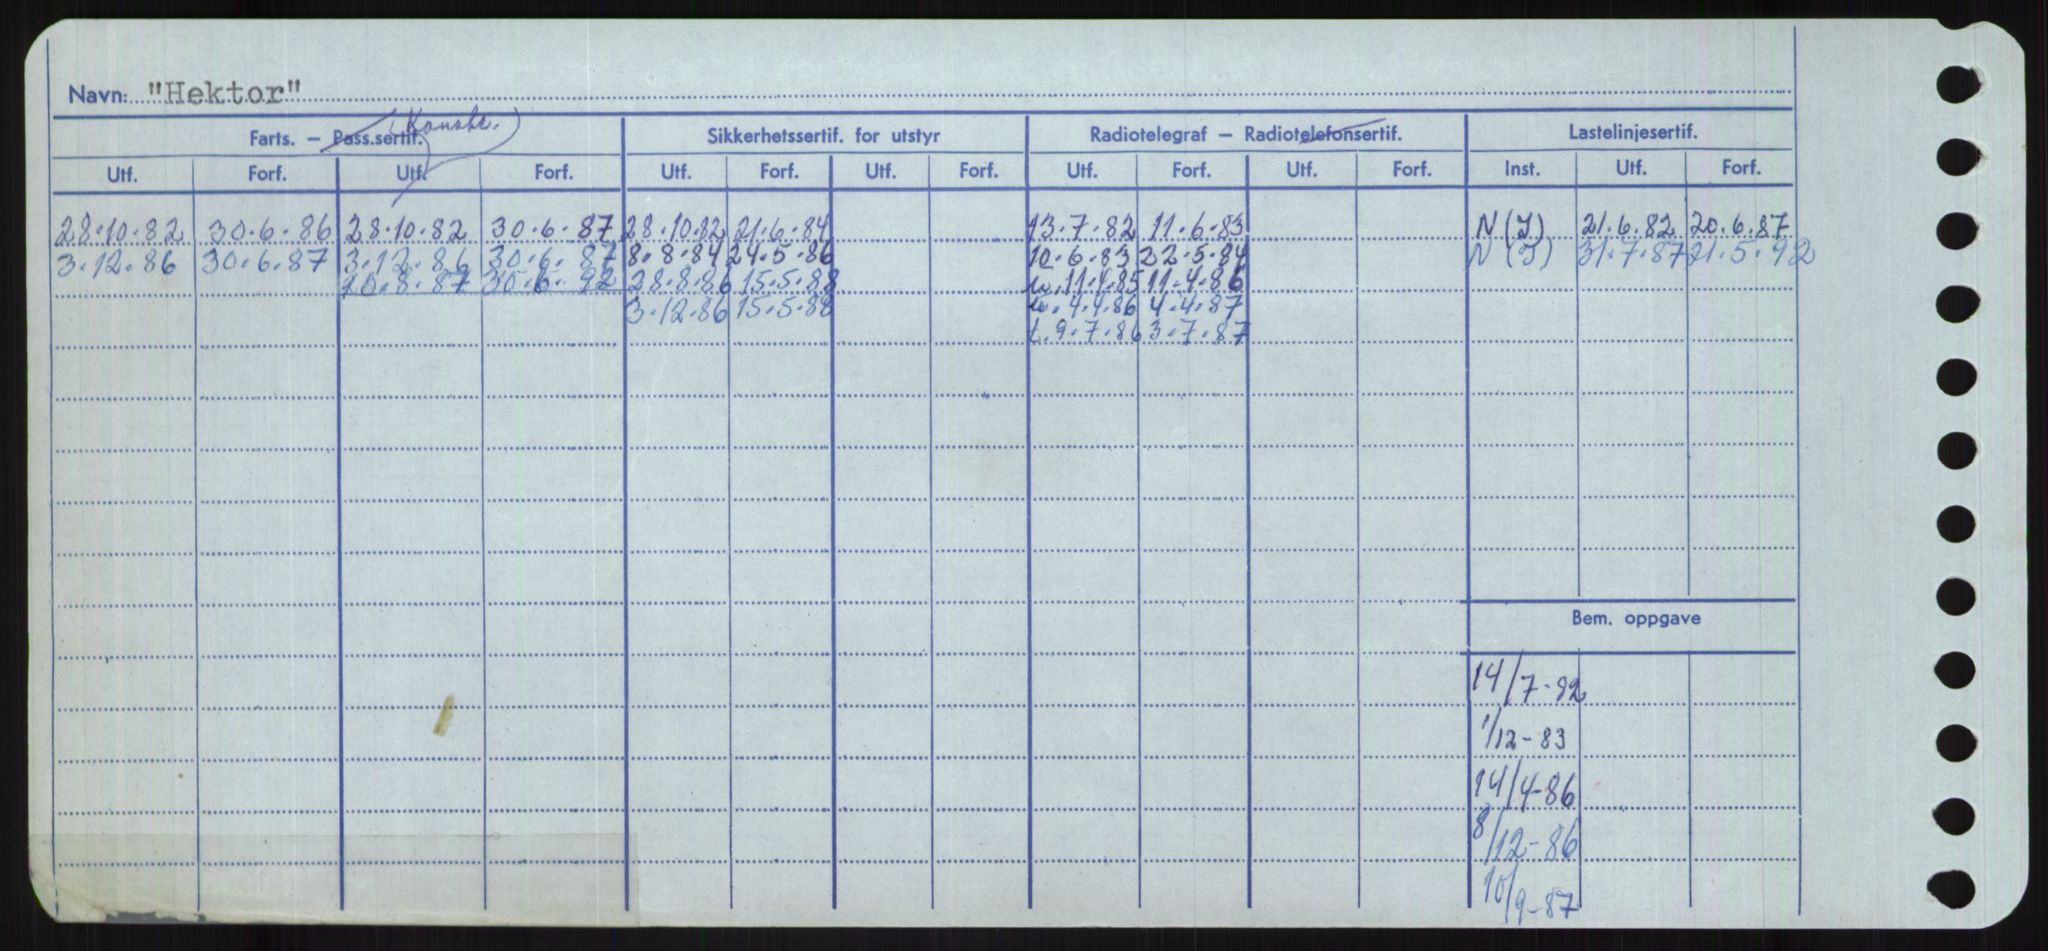 Navn: "Hektor"
(Konstr.)
Farts. – Pass.sertif. Sikkerhetssertif. for utstyr Radiotelegraf – Radiotelefonsertif. Lastelinjesertif.
Utf. Forf. Utf. Forf. Utf. Forf. Utf. Forf. Utf. Forf. Utf. Forf. Inst. Utf. Forf.
28.10.82 30.6.86 28.10.82 30.6.87 28.10.82 21.6.84 13.7.82 11.6.83 N(I) 21.6.82 20.6.87
3.12.86 30.6.87 3.12.86 30.6.87 8.8.84 24.5.86 10.6.83 22.5.84 N(I) 31.7.87 21.5.92
10.8.87 30.6.92 28.8.86 15.5.88 11.4.85 11.4.86
3.12.86 15.5.88 4.4.86 4.4.87
t. 9.7.86 3.7.87
Bem. oppgave
14/7-82
1/12-83
14/4-86
8/12-86
10/9-87